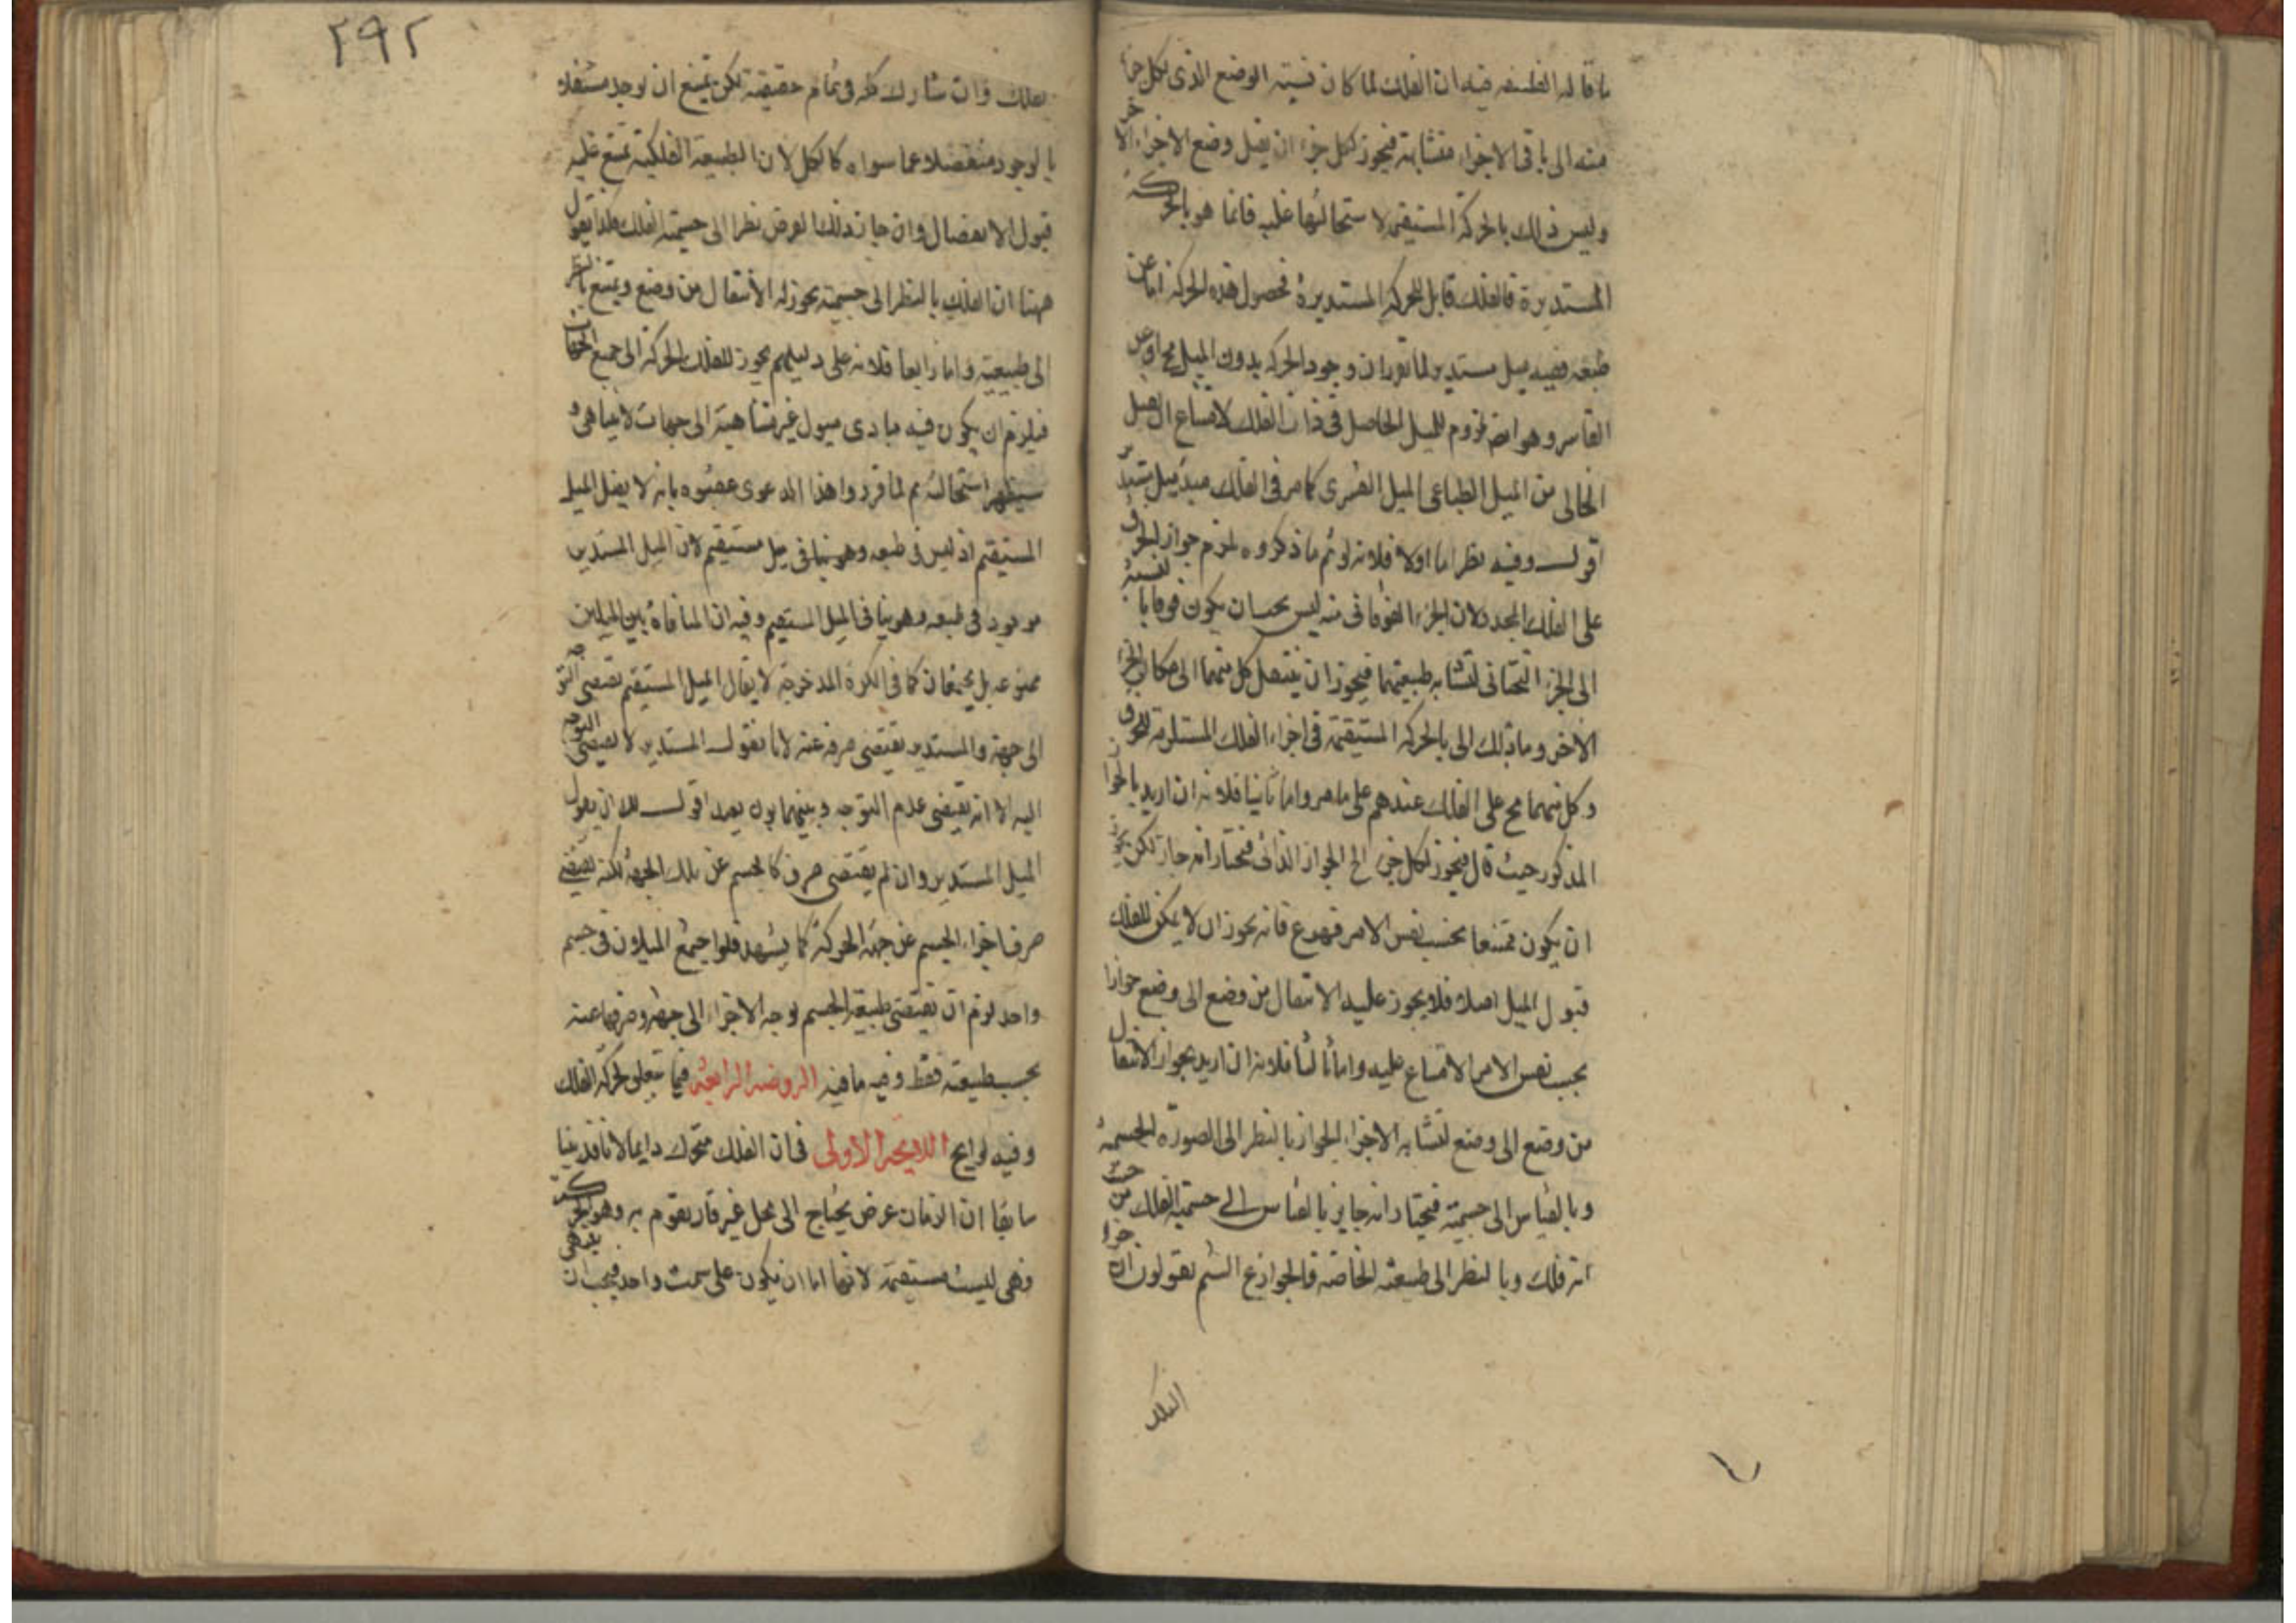 ما قاله الفلسفه فيه ان الفلك لما كان نسبته الوضع الذى لكل جزء
منه الى باقى الاجزاء متشابهة فيجوز لكل جزء ان يقبل وضع الاجزاء الاخر
وليس ذلك بالحركة المستقيمة لاستحالتها عليه فانما هو بالحركة
المستديرة فالفلك قابل للحركة المستديرة فحصول هذه الحركة اما عن
طبعه ففيه ميل مستدير لما تقرر ان وجود الحركة بدون الميل مح او عن
القاسر وهو ايضا لزوم للميل الحاصل فى ذات الفلك لامتناع ان يقبل
الخالى من الميل الطباعى الميل القسرى كما مر فى الفلك مبدء ميل مستدير
اقول وفيه نظر اما اولا فلانه لو تم ما ذكروه لزم جواز الخرق
على الفلك المحدد لان الجزء الفوقانى منه ليس يجب ان يكون فوقانيا لنسبته
الى الجزء التحتانى لتشابه طبيعتهما فيجوز ان ينتقل كل منهما الى مكان الجزء
الاخر وما ذلك الى بالحركة المستقيمة فى اجزاء الفلك المستلزمة للخرق
وكل منهما مح على الفلك عندهم على ما مر واما ثانيا فلانه ان اريد بالجواز
المذكور حيث قال فيجوز لكل جزء الخ الجواز الذاتى فنختار انه جاز لكن يجوز
ان يكون ممتنعا بحسب نفس الامر فهو ع فانه يجوز ان لا يمكن للفلك
قبول الميل اصلا فلا يجوز عليه الانتقال من وضع الى وضع جوازا
بحسب نفس الامر لامتناع عليه واما ثالثا فلانه ان اريد بجواز الانتقال
من وضع الى وضع لتشابه الاجزاء الجواز بالنظر الى الصورة الجسمية
وبالقياس الى جسميته فنختار انه جايز بالقياس الى جسمية الفلك من حيث
انه فلك وبالنظر الى طبيعته الخاصة فالجواز ع الستم تقولون ان جزء
الفلك
٢٩٢
الفلك وان شارك كله فى تمام حقيقته لكن يمتنع ان يوجد مستقلا
بالوجود منفصلا عما سواه كالكل لان الطبيعة الفلكية تمتنع عليه
قبول الانفصال وان جاز ذلك الفرض نظرا الى جسمية الفلك فلذا نقول
ههنا ان الفلك بالنظر الى جسميته يجوز له الانتقال من وضع ويمتنع بالنظر
الى طبيعته واما رابعا فلانه على دليلهم يجوز للفلك الحركة الى جميع الجهات
فيلزم ان يكون فيه مبادى ميول غير متناهية الى جهات لا يتناهى و
سيظهر استحالته ثم لما قرروا هذا المدعوى عقبوه بانه لا يقبل الميل
المستقيم اذ ليس فى طبعه وهو ينافى ميل مستقيم لان الميل المستدير
موجود فى طبعه وهو ينافى الميل المستقيم وفيه ان المنافاة بين الميلين
ممنوعه بل يجتمعان كما فى الكرة المدحرجة لا يقال الميل المستقيم يقتضى التوجه
الى جهة والمستدير يقتضى صرفه عنه لانا نقول المستدير لا يقتضى التوجه
اليه لا انه يقتضى عدم التوجه وبينهما بون بعيد اقول لك ان يقول
الميل المستدير وان لم يقتضى صرف كالجسم عن تلك الجهة لكنه يقتضى
صرف اجزاء الجسم عن جهة الحركة كما يشهد فلو اجتمع الميلان فى جسم
واحد لزم ان تقتضى طبيعة الجسم توجه الاجزاء الى جهة وصرفها عنه
بحسب طبيعته فقط وفيه ما فيه الروضه الرابعه فيما يتعلق بحركة الفلك
وفيه لوايح اللايحة الاولى فى ان الفلك متحرك دايما لانا قد بينا
سابقا ان الزمان عرض يحتاج الى محل غير قار يقوم به وهو الحركة
وهى ليست مستقيمة لانها اما ان يكون على سمت واحد فيجب ان